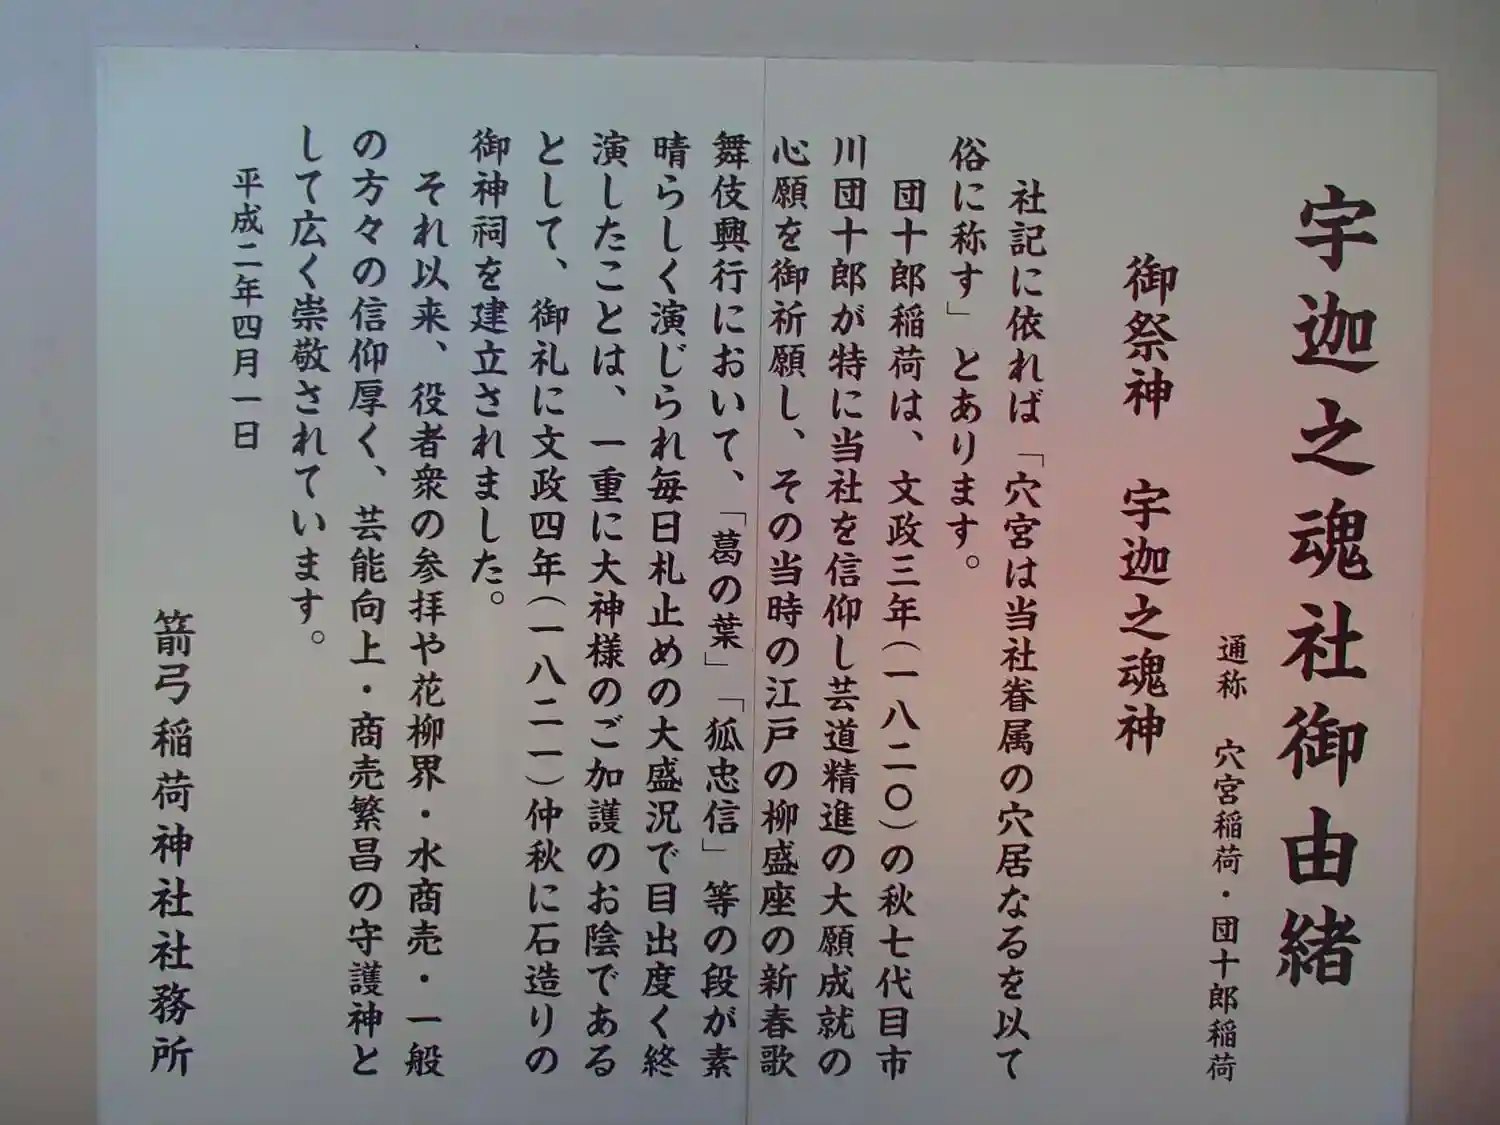 宇迦之魂社御由緒
通称　穴宮稲荷・団十郎稲荷
御祭神　宇迦之魂神
社記に依れば「穴宮は当社眷属の穴居なるを以て
俗に称す」とあります。
団十郎稲荷は、文政三年(一八二〇)の秋七代目市
川団十郎が特に当社を信仰し芸道精進の大願成就の
心願を御祈願し、その当時の江戸の柳盛座の新春歌
舞伎興行において、「葛の葉」「狐忠信」等の段が素
晴らしく演じられ毎日札止めの大盛況で目出度く終
演したことは、一重に大神様のご加護のお陰である
として、御礼に文政四年(一八二一)仲秋に石造りの
御神祠を建立されました。
それ以来、役者衆の参拝や花柳界・水商売・一般
の方々の信仰厚く、芸能向上・商売繁昌の守護神と
して広く崇敬されています。
平成二年四月一日
箭弓稲荷神社社務所